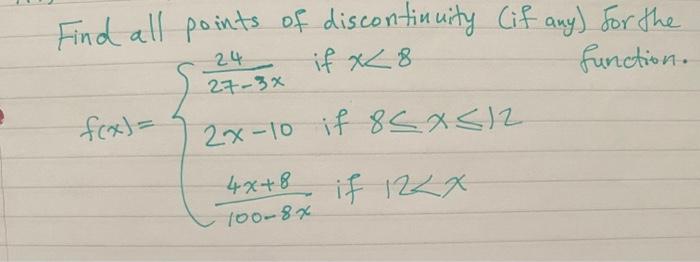 Find all points of discontinuity (if any) for the function.
f(x) = { 24/(27-3x) if x<8
2x-10 if 8≤x≤12
(4x+8)/(100-8x) if 12<x